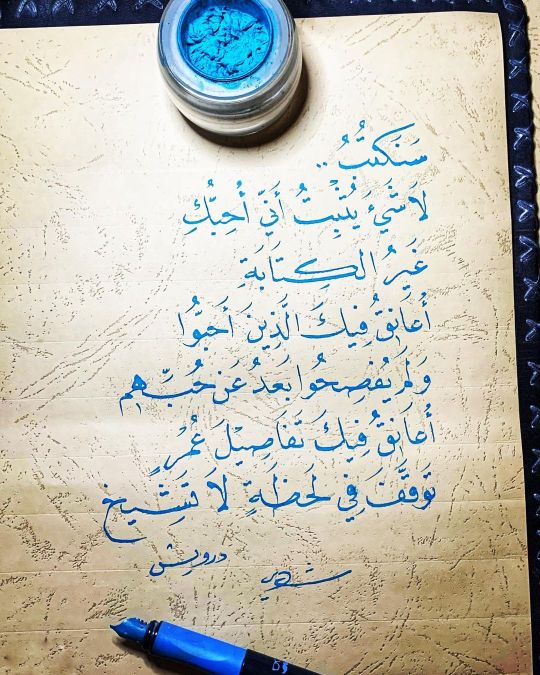 سَنَكتُبُ ..
لَا شَيْءَ يُثْبِتُ أَنِّي أُحِبُّكِ
غَيرُ الكِتَابَةِ
أُعَانِقُ فِيكَ الَّذِينَ أَحَبُّوا
وَلَم يُفصِحُوا بَعدُ عَن حُبِّهِم
أُعَانِقُ فِيكَ تَفَاصِيْلَ عُمْرٍ
تَوَقَّفَ فِي لَحظَةٍ لَا تَشِيخ
درويش